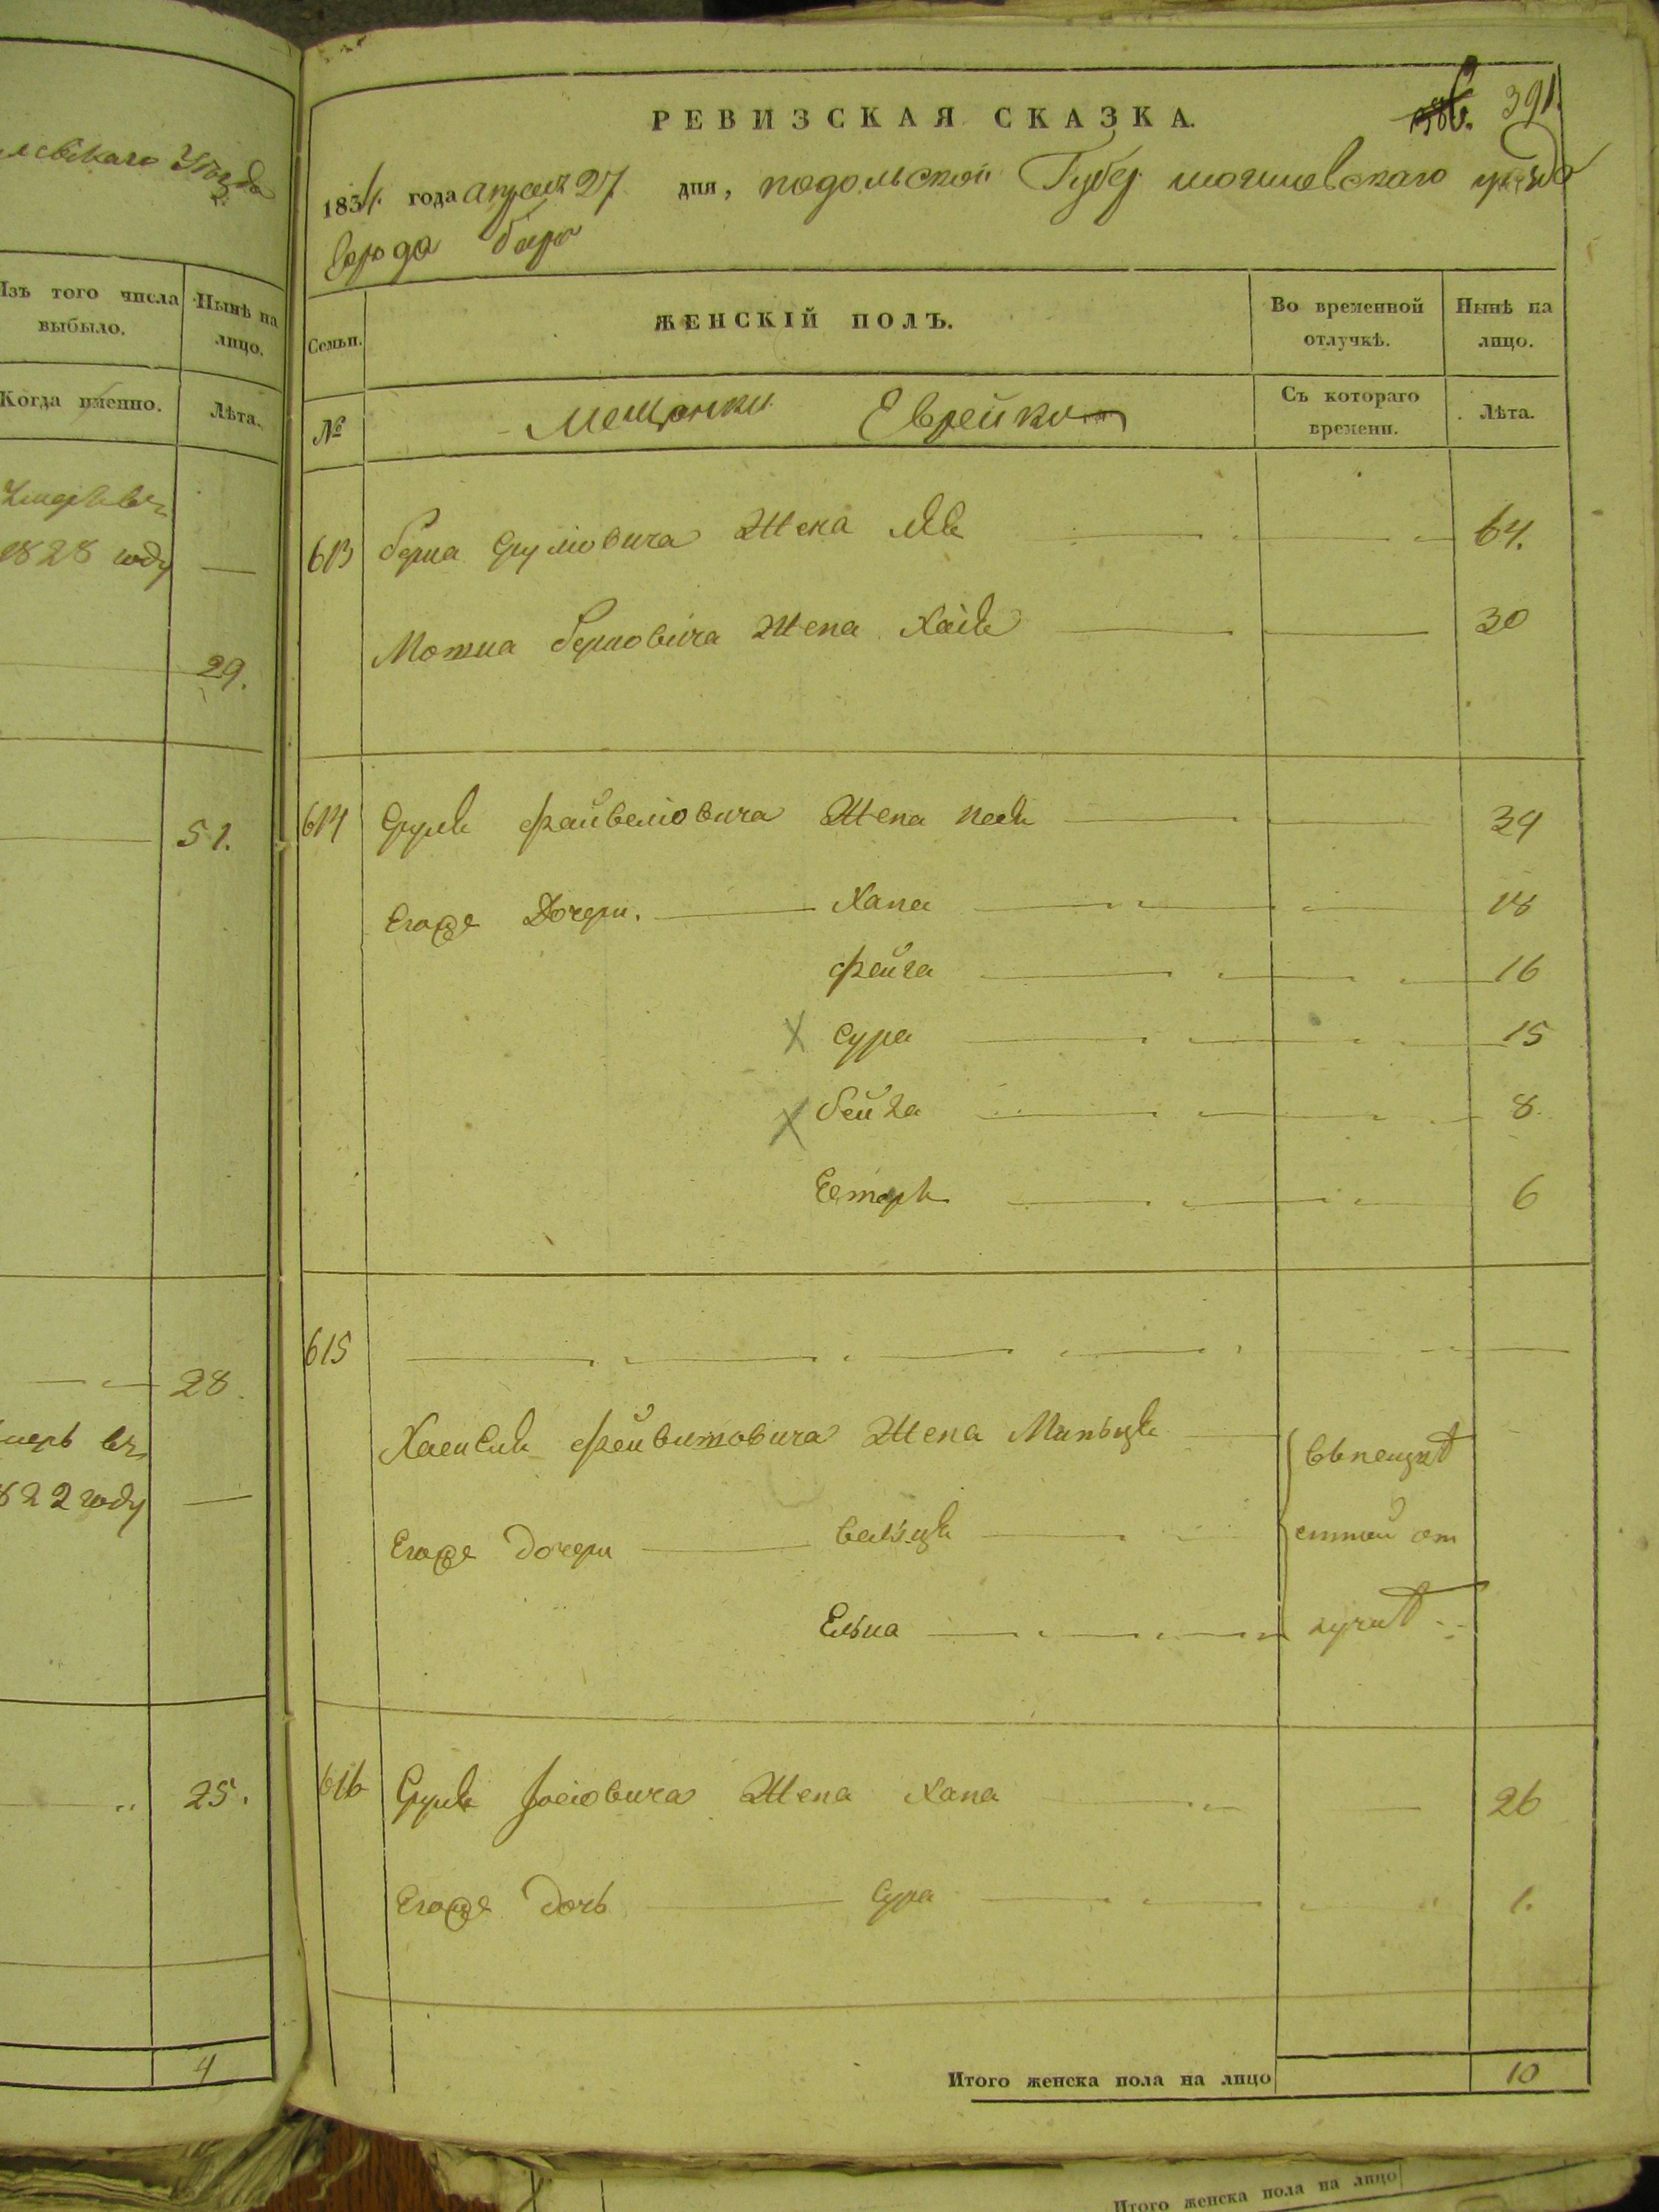 левскаго Уѣзда
Изъ того числа выбыло.
Нынѣ на лицо.
Когда именно.
Лѣта.
Умеръ въ
1828 году —
29.
51.
28.
умеръ въ
1822 году —
25.
4
РЕВИЗСКАЯ СКАЗКА.
386. 391.
1834 года апреля 27 дня, подольской Губер могилевскаго уѣзда
города бара
Семьи.
ЖЕНСКІЙ ПОЛЪ.
Во временной отлучкѣ.
Нынѣ на лицо.
№
Мещанки Еврейки
Съ котораго времени.
Лѣта.
613 берка Срулiовича Жена 64.
Мошка берковича Жена Хайка 30
614 Сруля файвелiовича Жена 34
Егоже Дочери. Хана 18
фейга 16
Сура 15
бейла 8
Естеръ 6
615
фейвишовича Жена
Егоже дочери
Елька
616 Сруля Iосiовича Жена Хана 26
Егоже дочь Сура 1.
Итого женска пола на лицо 10
Итого женска пола на лицо